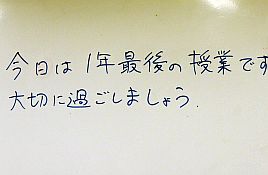 今日は1年最後の授業です
大切に過ごしましょう.